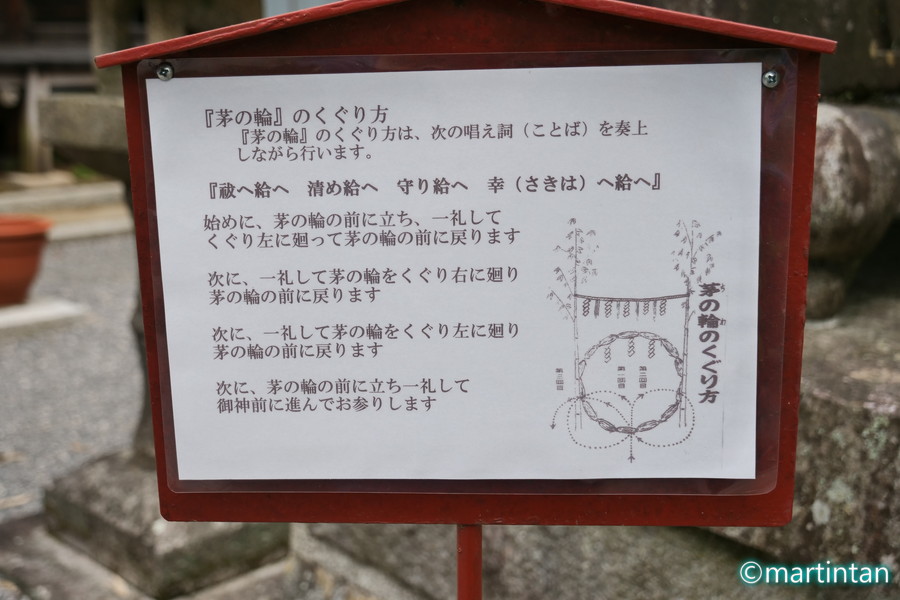 『茅の輪』のくぐり方
『茅の輪』のくぐり方は、次の唱え詞（ことば）を奏上
しながら行います。
『祓へ給へ　清め給へ　守り給へ　幸（さきは）へ給へ』
始めに、茅の輪の前に立ち、一礼して
くぐり左に廻って茅の輪の前に戻ります
次に、一礼して茅の輪をくぐり右に廻り
茅の輪の前に戻ります
次に、一礼して茅の輪をくぐり左に廻り
茅の輪の前に戻ります
次に、茅の輪の前に立ち一礼して
御神前に進んでお参りします
茅の輪のくぐり方
©martintan